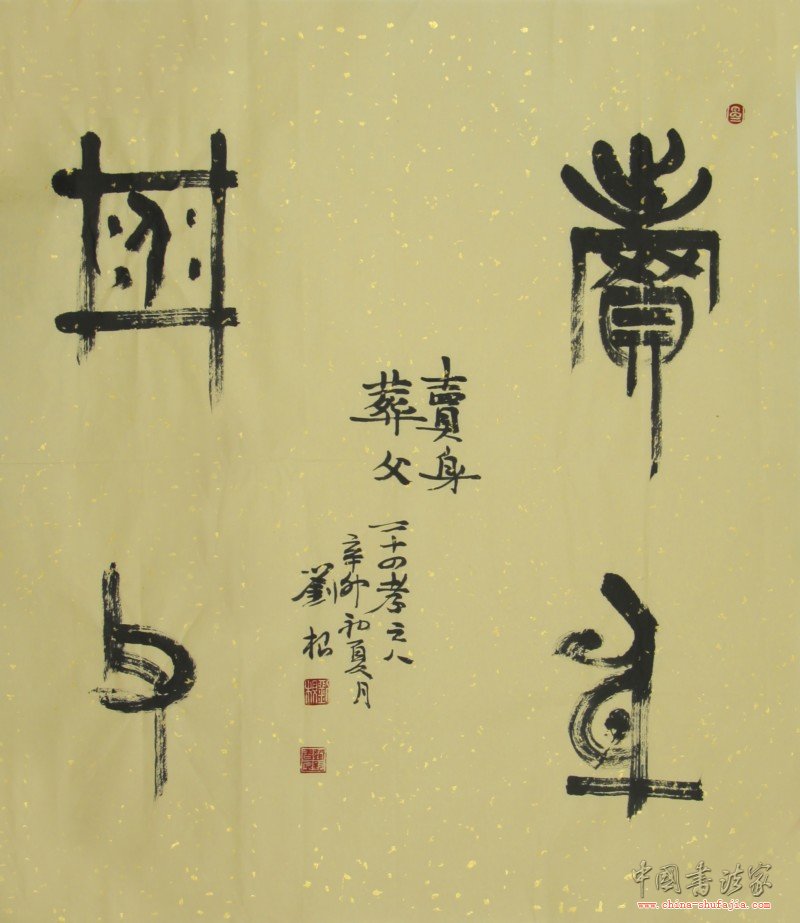 賣身
葬父
賣身
葬父
二十四孝之八
辛卯初夏月
劉
中國書法家
www.china-shufajia.com